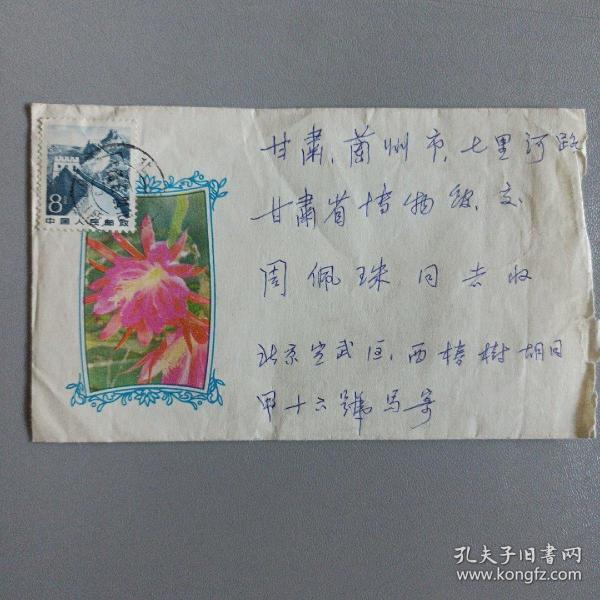 8
中国人民邮政
甘肃,兰州市,七里河路
甘肃省博物舘交
周佩珠同志收
北京宣武区,西椿樹胡同
甲十六號馬寄
孔夫子旧书网
www.kongfz.com